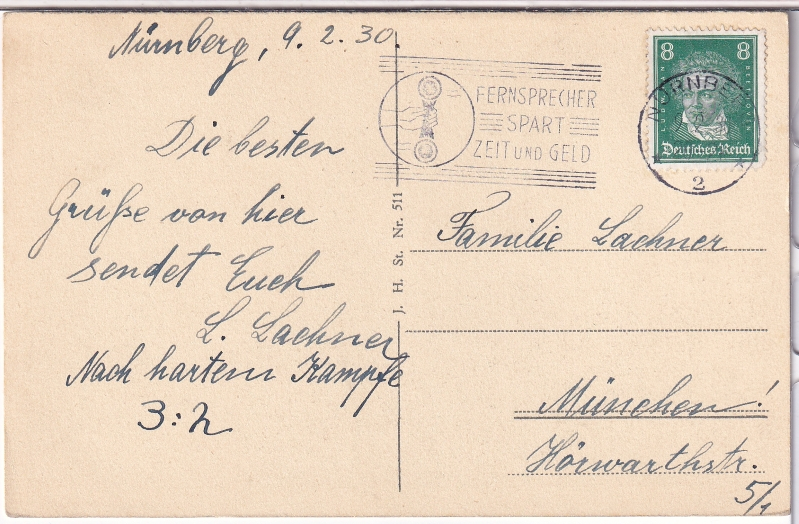 Nürnberg, 9.2.30.
Die besten
Grüße von hier
sendet Euch
L. Lachner
Nach hartem Kampfe
3:2
FERNSPRECHER
SPART
ZEIT UND GELD
8 8
LUDWIG VAN BEETHOVEN
Deutsches Reich
NÜRNBERG
2
J. H. St. Nr. 511
Familie Lachner
München!
Hörwarthstr.
5/1